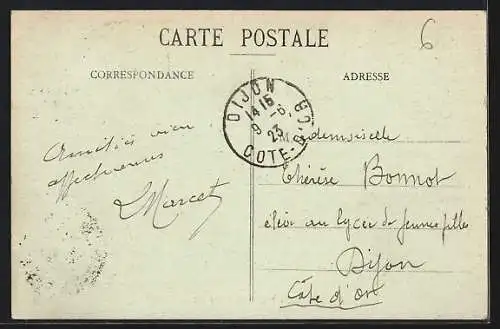 CARTE POSTALE
6
CORRESPONDANCE
ADRESSE
DIJON
14 15
9 -6
23
COTE-D'OR
Amitiés bien
affectueuses
Marcel
Mademoiselle
Thérèse Bonnot
élève au lycée de jeunes filles
Dijon
Côte d'Or